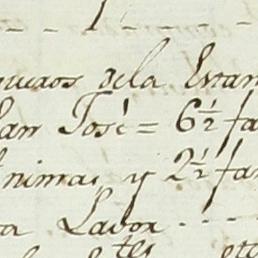 dela Estan
San José = 6½ fa
nimas y 2½ fa
a Lavor